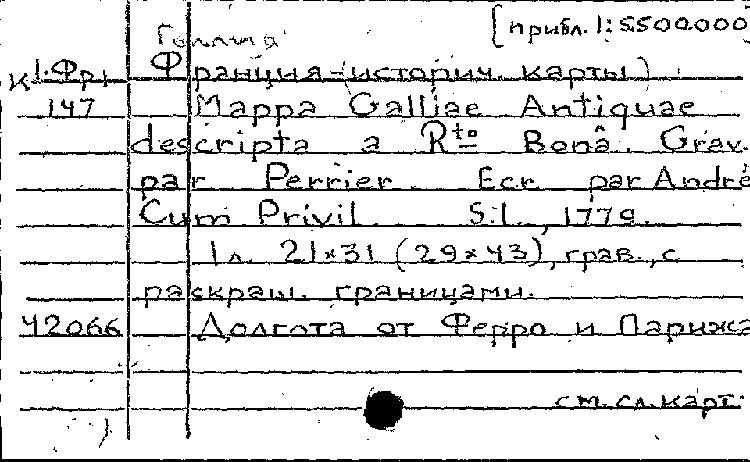 [прибл. 1:5500000
Галлия
К 1·Фр. Франция (историч. карты)
147 Mappa Galliae Antiquae
descripta a Rto Bona. Grav.
par Perrier. Ecr. par André
Cum Privil. S.l., 1779.
1 л. 21×31 (29×43), грав., с
раскраш. границами.
42066 Долгота от Ферро и Парижа
см. сл. карт.